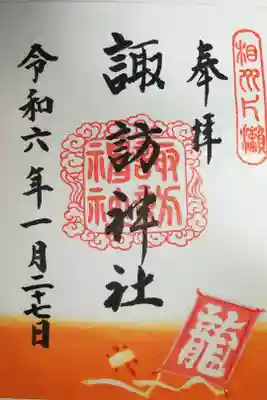 相州片瀬
奉拝
諏訪神社
諏訪神社
令和六年一月二十七日
龍